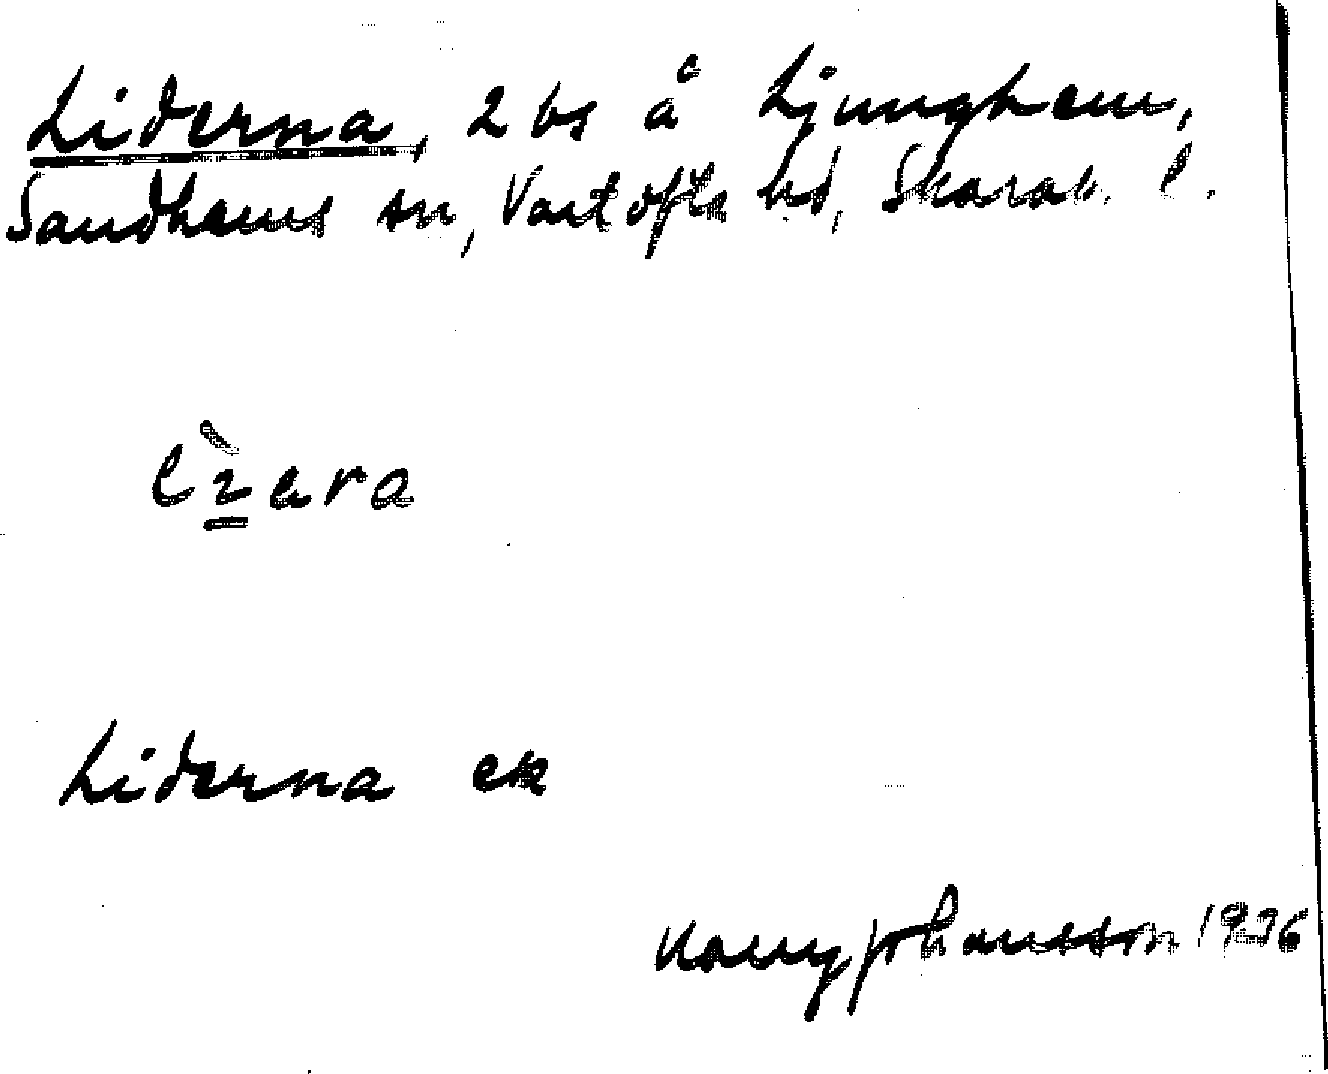 Liderna, 2 bs å Ljunghem,
Sandhems sn, Vartofta hd, Skarab. l.
Liderna ek
Johansson 1936